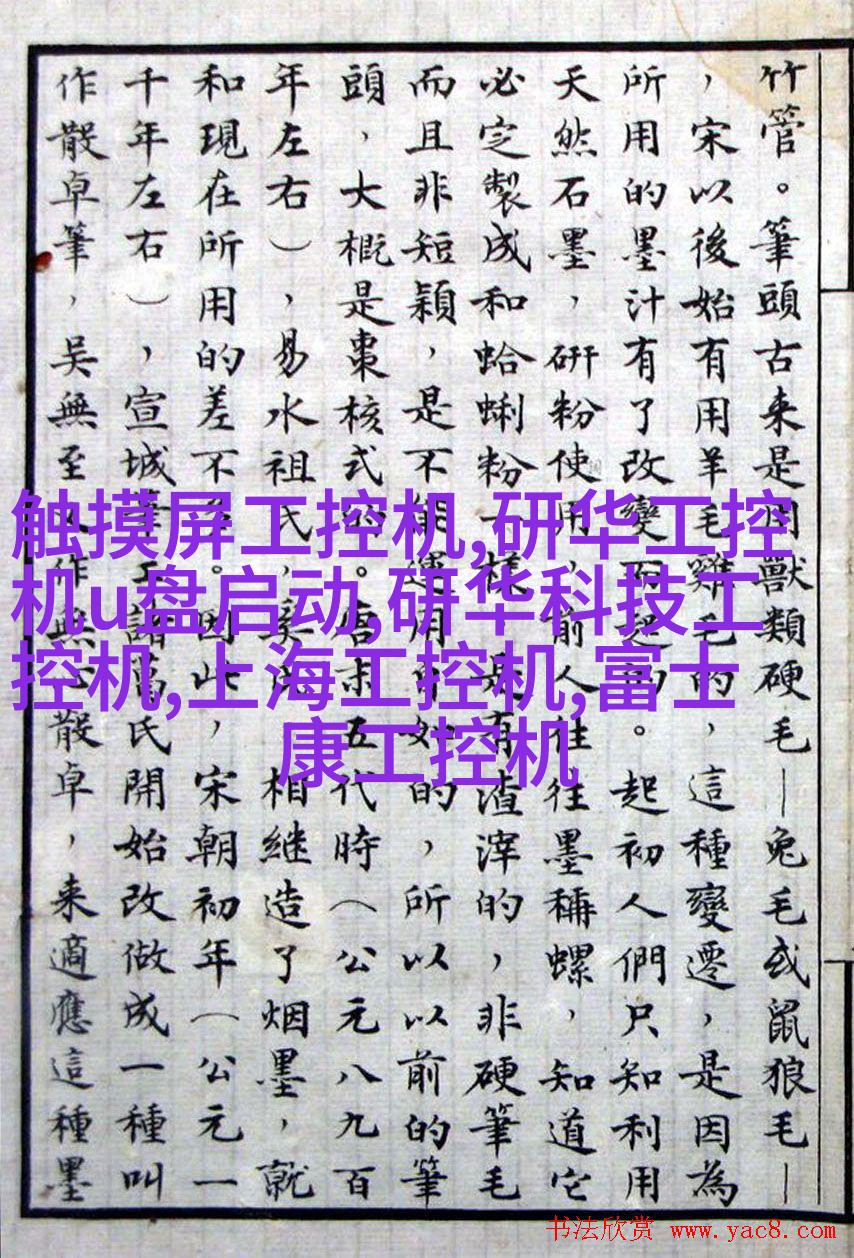 竹管。筆頭古来是用獸類硬毛—兔毛或鼠狼毛—
，宋以後始有用羊毛雞毛的，這種變遷，是因為
所用的墨汁有了改變而起的。起初人們只知利用
天然石墨，研粉使用，前人往往墨稱螺，知道它
必定製成和蛤蜊粉一樣，是有渣滓的，非硬筆毛
而且非短穎，是不能運用自如的，所以以前的筆
頭，大概是棗核式的。唐末五代時（公元八九百
年左右），易水祖氏，奚氏，相继造了烟墨，就
和現在所用的差不多。因此，宋朝初年（公元一
千年左右），宣城筆工諸葛氏開始改做成一種叫
作散卓筆，吴無至又作無心散卓，来適應這種墨
触摸屏工控机,研华工控
机u盘启动,研华科技工
控机,上海工控机,富士
康工控机
书法欣赏 www.yac8.com